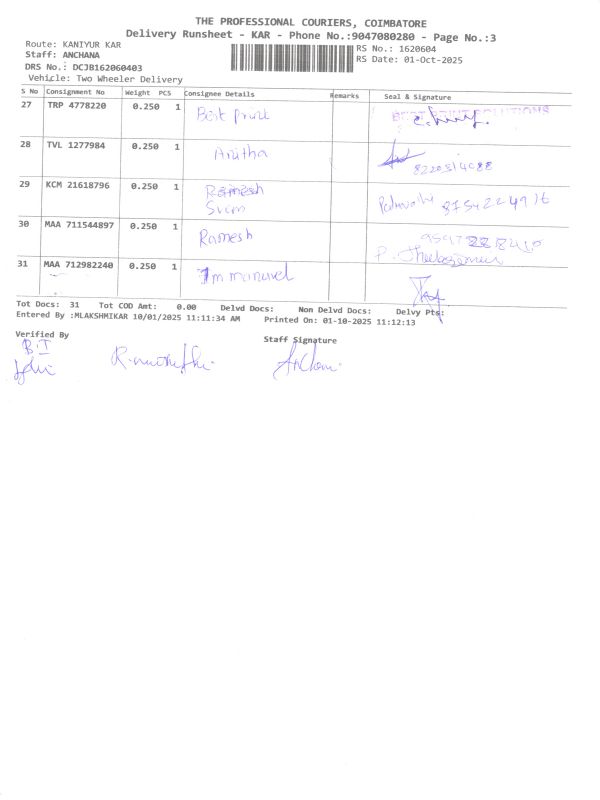 THE PROFESSIONAL COURIERS, COIMBATORE
Delivery Runsheet - KAR - Phone No.:9047080280 - Page No.:3
Route: KANIYUR KAR
Staff: ANCHANA
DRS No.: DCJB162060403
Vehicle: Two Wheeler Delivery
RS No.: 1620604
RS Date: 01-Oct-2025
S No Consignment No Weight PCS Consignee Details Remarks Seal & Signature
27 TRP 4778220 0.250 1 Best print
28 TVL 1277984 0.250 1 Anitha
29 KCM 21618796 0.250 1 Ramesh
30 MAA 711544897 0.250 1 Ramesh
31 MAA 712982240 0.250 1 Immanuvel
Tot Docs: 31 Tot COD Amt: 0.00 Delvd Docs: Non Delvd Docs: Delvy Pts:
Entered By :MLAKSHMIKAR 10/01/2025 11:11:34 AM Printed On: 01-10-2025 11:12:13
Verified By
Staff Signature
B.I